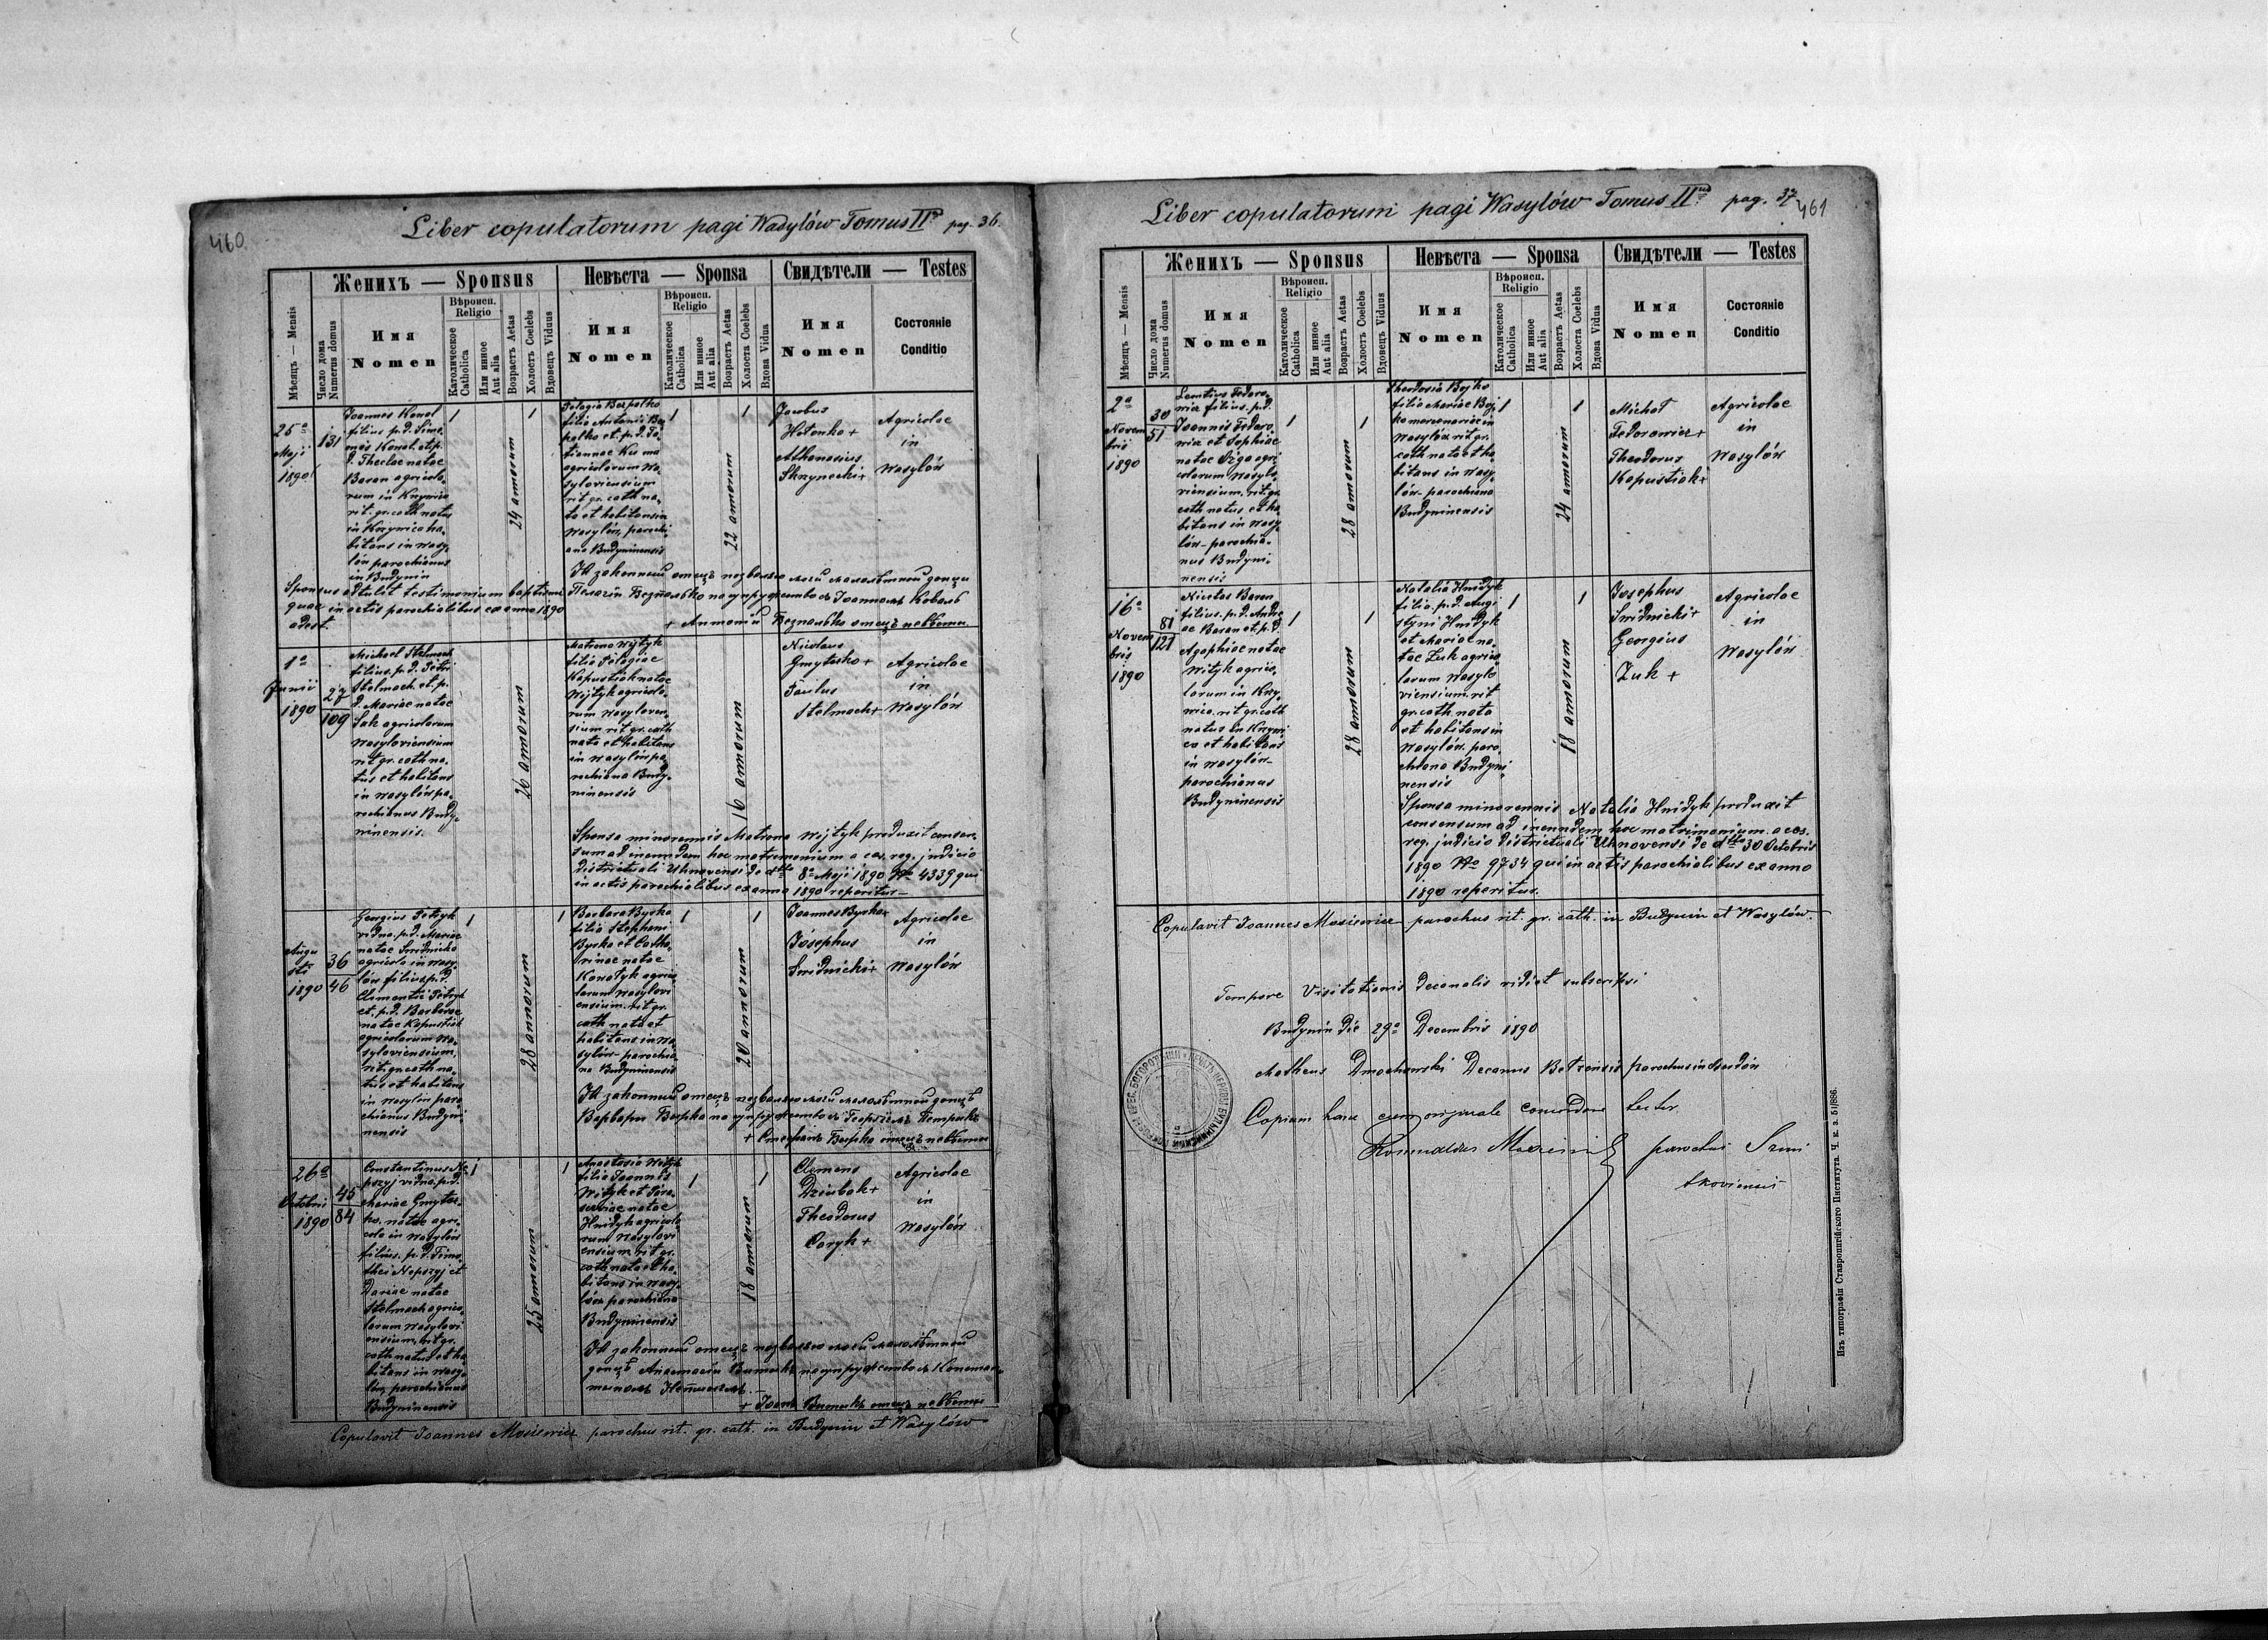 460.
Liber copulatorum pagi Wasylów Tomus IIus pag. 36.
Мѣсяцъ — Mensis
Число дома
Numerus domus
Женихъ — Sponsus
Имя
Nomen
Вѣроисп.
Religio
Католическое
Catholica
Или инное
Aut alia
Возрастъ Aetas
Холостъ Coelebs
Вдовецъ Viduus
Невѣста — Sponsa
Имя
Nomen
Вѣроисп.
Religio
Католическое
Catholica
Или инное
Aut alia
Возрастъ Aetas
Холоста Coelebs
Вдова Vidua
Свидѣтели — Testes
Имя
Nomen
Состояніе
Conditio
25a
Maji
1890
131
Joannes Kowal
filius p.d. Simeo-
nis Kowal et p.
d. Theclae natae
Baran agricola-
rum in Krzywica
rit. gr. cath natus
in Krzywica ha-
bitans in Wasy-
lów parochianus
in Budynin
1
24 annorum
1
Pelagia Bezpalko
filia Antonii Bez
palko et p.d. Ta-
tiannae Kuzma
agricolarum Wa-
syloviensium
rit gr. cath na-
ta et habitans in
Wasylów, parochi-
ana Budyninensis
1
22 annorum
1
Jacobus
Hotonko +
Athanasius
Skrynecki +
Agricolae
in
Wasylów
Sponsus attulit testimonium baptismi
quae in actis parochialibus ex anno 1890
adest.
Я законный отецъ позваляю моей малолѣтной донци
Пелагіи Безпалько на супружество съ Іоанномъ Коваль
+ Антоній Безпалько отецъ невѣсты
1a
Junii
1890
27
109
Michael Stelmach
filius p.d. Petri
Stelmach et p.
d. Mariae natae
Sak agricolarum
Wasyloviensium
rit gr. cath na-
tus et habitans
in Wasylów pa-
rochianus Budy-
ninensis.
26 annorum
Matrona Wojtyk
filia Pelagiae
Kapustiak natae
Wojtyk agricola-
rum Wasylovien-
sium rit gr. cath
nata et habitans
in Wasylów pa-
rochiana Budy-
ninensis
16 annorum
Nicolaus
Gmyterko +
Paulus
Stelmach +
Agricolae
in
Wasylów
Sponsa minorennis Matrona Wojtyk produxit consen-
sum ad ineundem hoc matrimonium a ces. reg. judicio
districtuali Uhnovensi de dtto 8a Maji 1890 No 4339 qui
in actis parochialibus ex anno 1890 reperitur —
Augu
sti
1890
36
46
Georgius Petryk
viduus p.d. Mariae
natae Smidnicka
agricola in Wasy-
lów filius p.d.
Clementii Petryk
et p.d. Barbarae
natae Kapustiak
agricolarum Wa-
syloviensium,
rit. gr. cath na-
tus et habitans
in Wasylów paro
chianus Budyni-
nensis
1
28 annorum
1
Barbara Byrka
filia Stephani
Byrka et Catha-
rinae natae
Konotyk agrico-
larum Wasylovi
ensium rit gr.
cath nata et
habitans in Wa-
sylów parochia-
na Budyninensis
1
20 annorum
1
Joannes Byrka +
Josephus
Smidnicki +
Agricolae
in
Wasylów
Я законный отецъ позваляю моей малолѣтной донцѣ
Варвары Бырка на супружество съ Георгіемъ Петрикъ
+ Стефанъ Бырка отецъ невѣсты
26a
Octobris
1890
45
84
Constantinus Ne-
pszyj viduus p.d.
Mariae Gmyter-
ko natae agri-
cola in Wasylów
filius p.d. Timo-
thei Nepszyj et
Dariae natae
Stelmach agrico-
larum Wasylovi
ensium, rit gr.
cath natus et ha-
bitans in Wasy-
lów, parochianus
Budyninensis
1
25 annorum
1
Anastasia Wityk
filia Joannis
Wityk et Para-
sceviae natae
Hnidyk agricola-
rum Wasylovi
ensium rit gr.
cath nata et ha-
bitans in Wasy-
lów parochiana
Budyninensis
1
18 annorum
1
Clemens
Dziubak +
Theodorus
Coryk +
Agricolae
in
Wasylów
Я законный отецъ позваляю моей малолѣтной
донцѣ Анастасіи Витыкъ на супружество съ Констан-
тиномъ
+ Іоанъ Витыкъ отецъ невѣсты
Copulavit Joannes Mosiewicz parochus rit. gr. cath. in Budynin et Wasylów
461
Liber copulatorum pagi Wasylów Tomus IIus pag. 37
Мѣсяцъ — Mensis
Число дома
Numerus domus
Женихъ — Sponsus
Имя
Nomen
Вѣроисп.
Religio
Католическое
Catholica
Или инное
Aut alia
Возрастъ Aetas
Холостъ Coelebs
Вдовецъ Viduus
Невѣста — Sponsa
Имя
Nomen
Вѣроисп.
Religio
Католическое
Catholica
Или инное
Aut alia
Возрастъ Aetas
Холоста Coelebs
Вдова Vidua
Свидѣтели — Testes
Имя
Nomen
Состояніе
Conditio
2a
Novem
bris
1890
30
51
Leontius Fedoro-
wicz filius p.d.
Joannis Fedoro
wicz et Sophiae
natae Dziga agri
colarum Wasylo-
viensium, rit. gr.
cath natus et ha
bitans in Wasy-
lów parochia-
nus Budyni-
nensis
1
28 annorum
1
Theodosia Bojko
filia Mariae Boj-
ko mercenariae in
Wasylów rit gr.
cath nata et ha-
bitans in Wasy-
lów parochiana
Budyninensis
1
24 annorum
1
Michał
Fedorowicz +
Theodorus
Kapustiak +
Agricolae
in
Wasylów
16a
Novem
bris
1890
81
121
Nicolas Baran
filius p.d. Andre
ae Baran et p.d.
Agaphiae natae
Wityk agrico-
larum in Krzy-
wica rit gr. cath
natus in Krzywi
ca et habitans
in Wasylów
parochianus
Budyninensis
1
28 annorum
1
Natalia Hnidyk
filia p.d. Augu
styni Hnidyk
et Mariae na-
tae Zuk agrico-
larum Wasylo
viensium rit
gr. cath nata
et habitans in
Wasylów paro-
chiana Budyni
nensis
1
18 annorum
1
Josephus
Smidnicki +
Georgius
Zuk +
Agricolae
in
Wasylów
Sponsa minorennis Natalia Hnidyk produxit
consensum ad ineundem hoc matrimonium a ces.
reg. judicio districtuali Uhnovensi de dtto 30 Octobris
1890 No 9734 qui in actis parochialibus ex anno
1890 reperitur.
Copulavit Joannes Mosiewicz parochus rit. gr. cath. in Budynin et Wasylów.
Tempore Visitationis Decanalis vidi et subscripsi
Budynin die 29a Decembris 1890
Matheus Dmochowski Decanus Belzensis parochus in
Copiam hanc cum originale concordare
Romualdus parochus
Изъ типографіи Ставропигійского Института. Ч. к. з. 51/886.